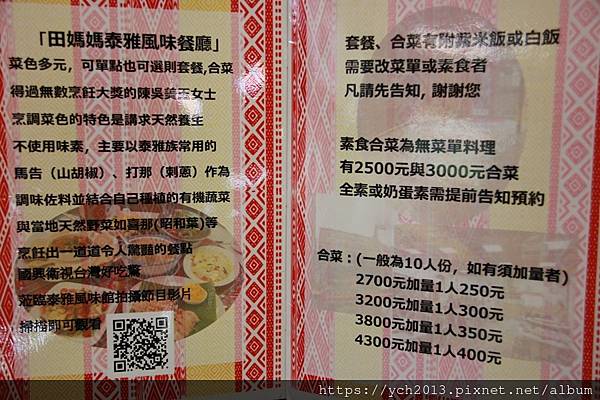 「田媽媽泰雅風味餐廳」
菜色多元，可單點也可選則套餐,合菜
得過無數烹飪大獎的陳吳美玉女士
烹調菜色的特色是講求天然養生
不使用味素，主要以泰雅族常用的
馬告（山胡椒）、打那（刺蔥）作為
調味佐料並結合自己種植的有機蔬菜
與當地天然野菜如喜那(昭和葉)等
烹飪出一道道令人驚豔的餐點
國興衛視台灣好吃驚
蒞臨泰雅風味館拍攝節目影片
掃描即可觀看
套餐、合菜有附紫米飯或白飯
需要改菜單或素食者
凡請先告知, 謝謝您
素食合菜為無菜單料理
有2500元與3000元合菜
全素或奶蛋素需提前告知預約
合菜：(一般為10人份，如有須加量者)
2700元加量1人250元
3200元加量1人300元
3800元加量1人350元
4300元加量1人400元
https://ych2013.pixnet.net/album